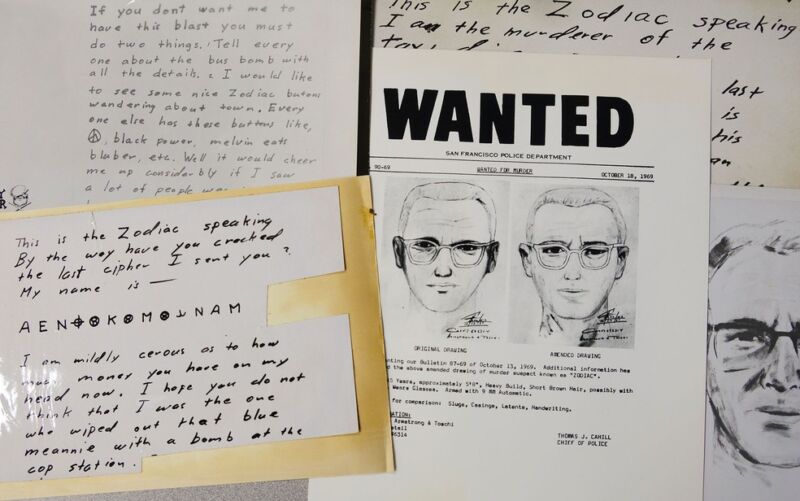 If you dont want me to
have this blast you must
do two things. 1 Tell every
one about the bus bomb with
all the details. 2 I would like
to see some nice Zodiac butons
wandering about town. Every
one else has these buttons like,
☮, black power, melvin eats
bluber, etc. Well it would cheer
me up considerbly if I saw
a lot of people
This is the Zodiac speaking
I am the murderer of the
last
is
his
This is the Zodiac speaking
By the way have you cracked
the last cipher I sent you?
My name is —
A E N ⌖ ⊗ K ⊗ M ⊗ ⅃ N A M
I am mildly cerous as to how
much money you have on my
head now. I hope you do not
think that I was the one
who wiped out that blue
meannie with a bomb at the
cop station.
WANTED
SAN FRANCISCO POLICE DEPARTMENT
90-69 WANTED FOR MURDER OCTOBER 18, 1969
ORIGINAL DRAWING AMENDED DRAWING
our Bulletin 87-69 of October 13, 1969. Additional information has
the above amended drawing of murder suspect known as "ZODIAC".
Years, approximately 5'8", Heavy Build, Short Brown Hair, possibly with
Wears Glasses. Armed with 9 MM Automatic.
for comparison: Slugs, Casings, Latents, Handwriting.
Armstrong & Toschi
THOMAS J. CAHILL
CHIEF OF POLICE